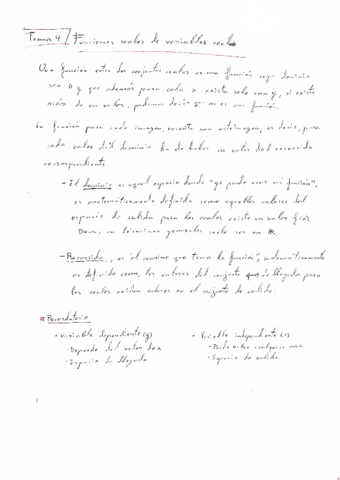 Tema 4 / Funciones reales de variables reales
Una función entre dos conjuntos reales es una función cuyo dominio
sea D y que además para cada x exista solo una y, si existe
más de un valor, podemos decir que no es una función.
La función para cada imagen, necesita una antiimagen, es decir, para
cada valor del dominio ha de haber un valor del recorrido
correspondiente
- El dominio es aquel espacio donde "se puede crear mi función",
es matemáticamente definido como aquellos valores del
espacio de salida para los cuales existe un valor f(x)
Dom, en términos generales suele ser en ℝ
- Recorrido, es "el camino que toma la función", matemáticamente
es definido como, los valores del conjunto de llegada para
los cuales existen valores en el conjunto de salida.
Recordatorio
• Variable dependiente (y)
- Depende del valor de x
- Espacio de llegada
• Variable independiente (x)
- Puede valer cualquier cosa
- Espacio de salida.